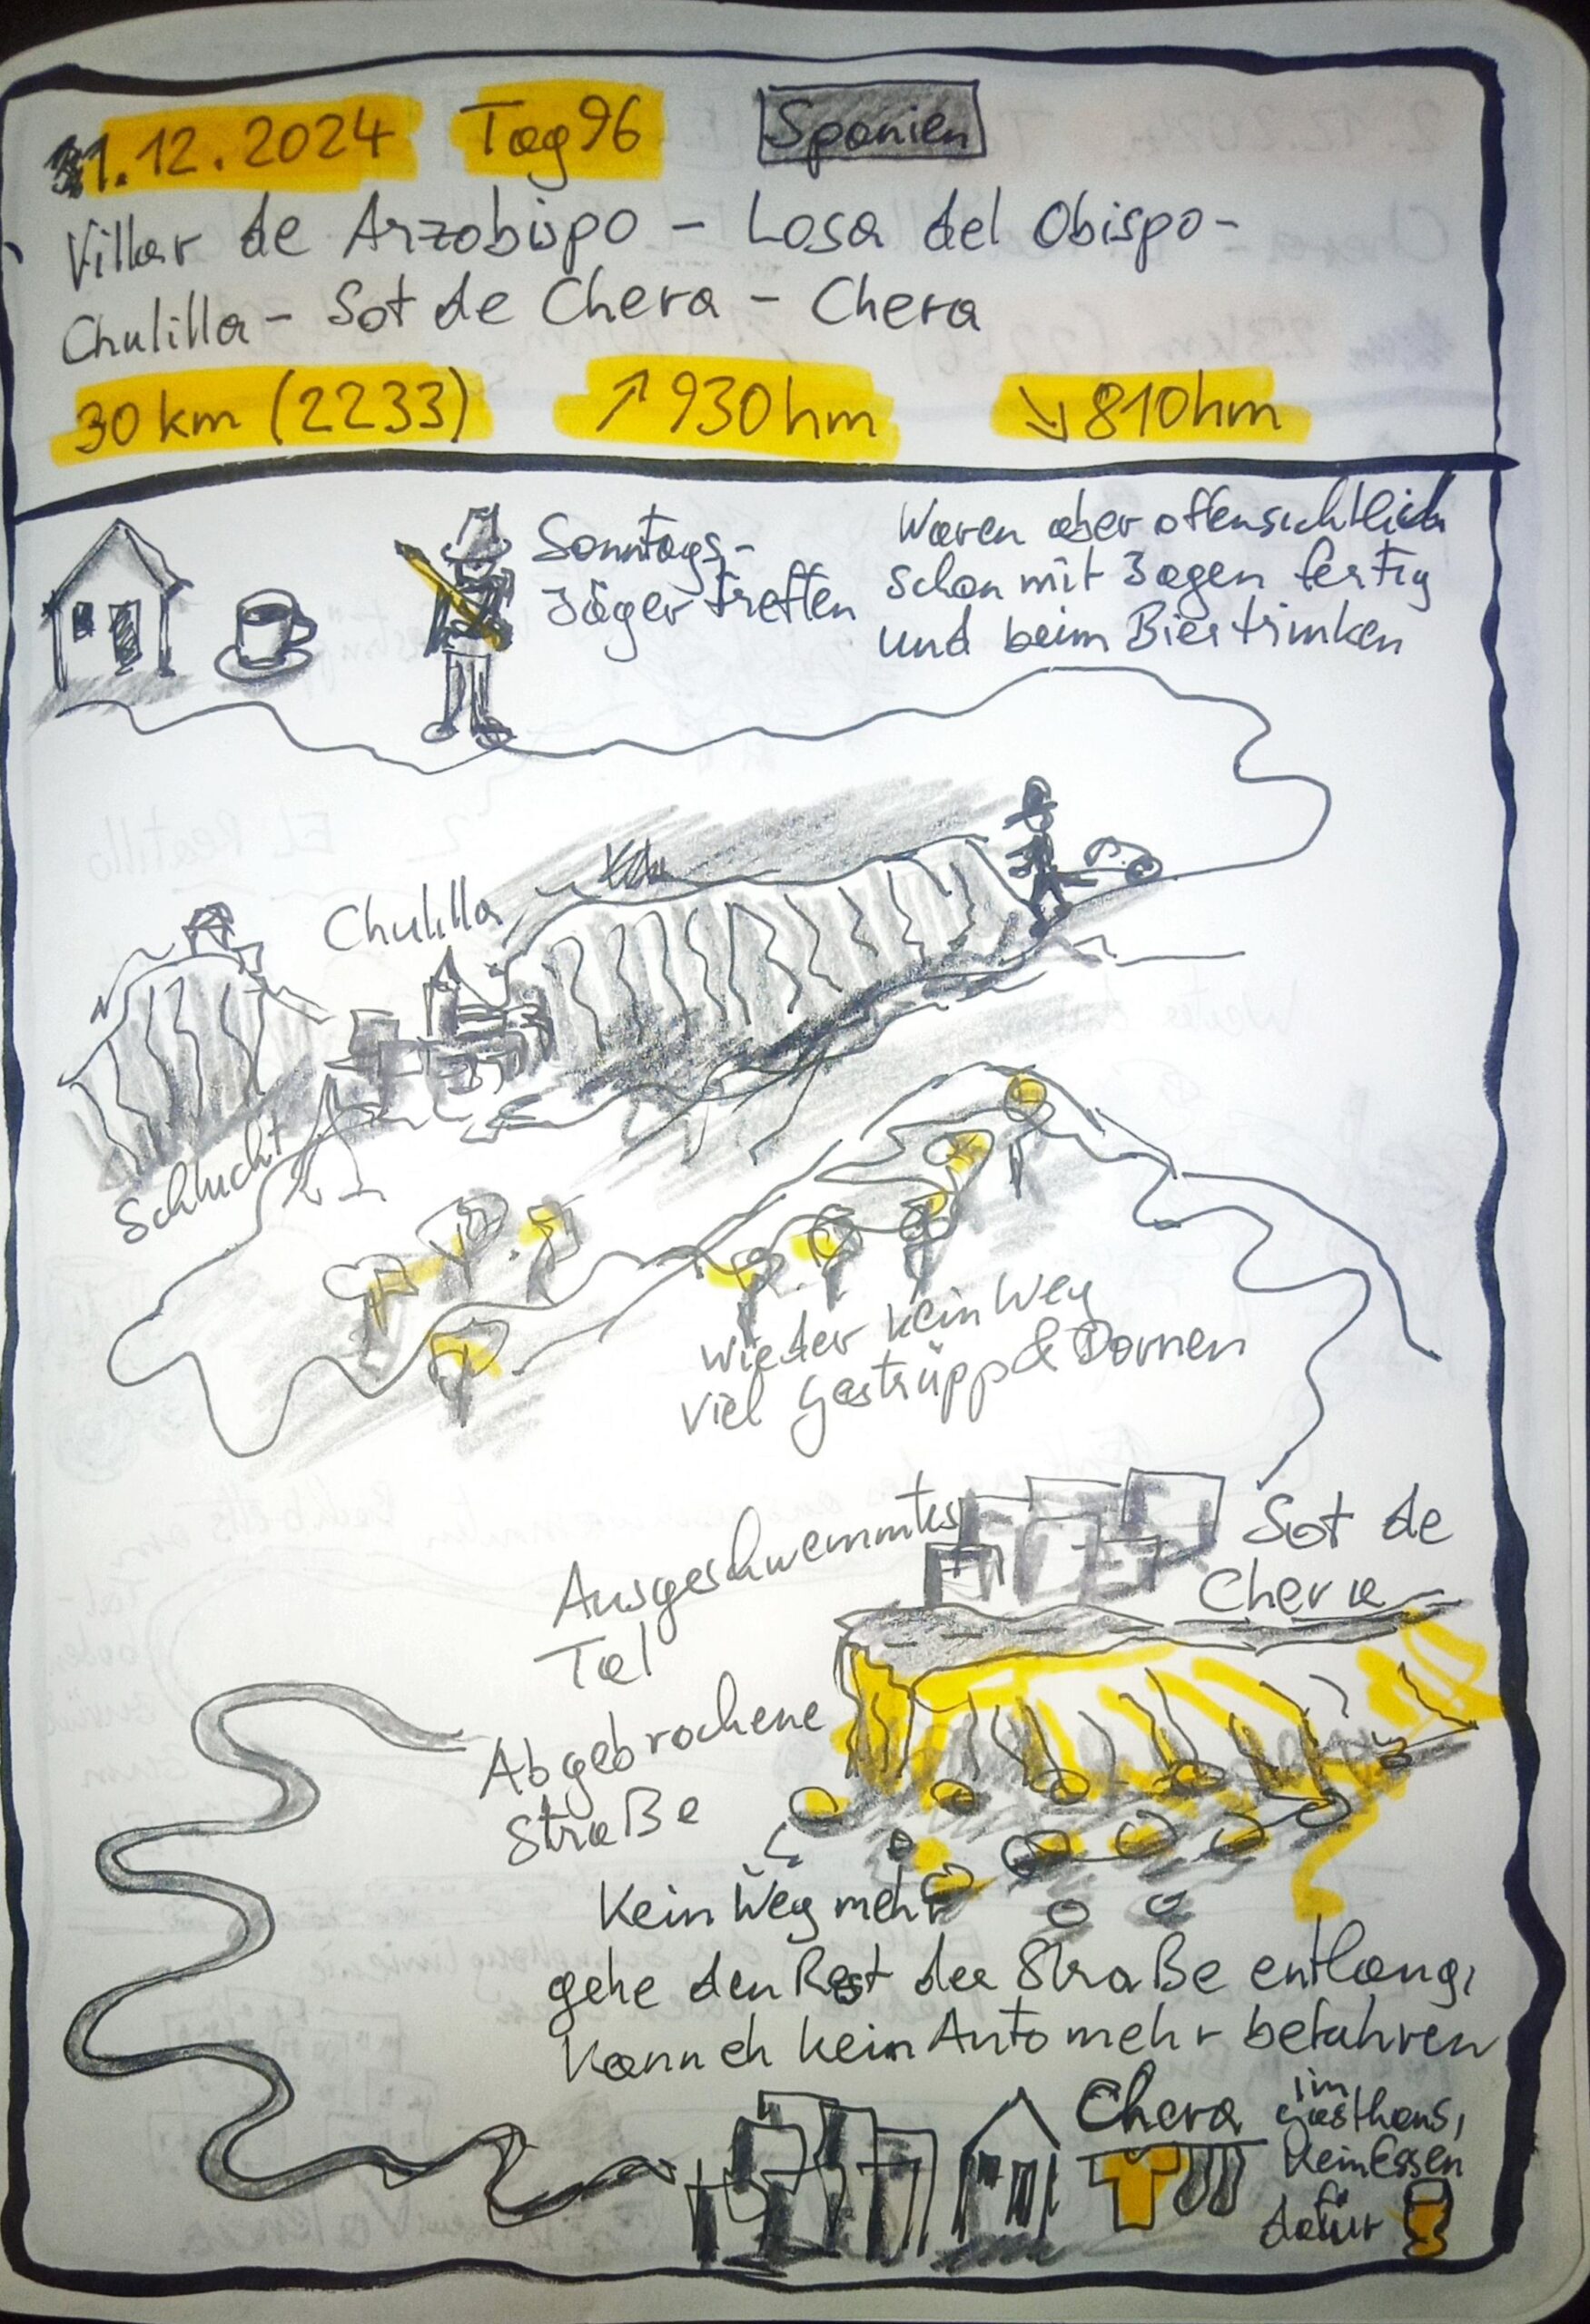 1.12.2024 Tag 96 Spanien
Villar de Arzobispo - Losa del Obispo -
Chulilla - Sot de Chera - Chera
30 km (2233) ↗930hm ↘810hm
Sonntags-
Jägertreffen
Waren aber offensichtlich
schon mit Jagen fertig
und beim Biertrinken
Chulilla
Schlucht
Wieder kein Weg
viel Gestrüpp & Dornen
Ausgeschwemmtes
Tal
Sot de
Chera
Abgebrochene
Straße
Kein Weg mehr
gehe den Rest der Straße entlang,
kann eh kein Auto mehr befahren
Chera
im
Gasthaus,
kein Essen
dafür